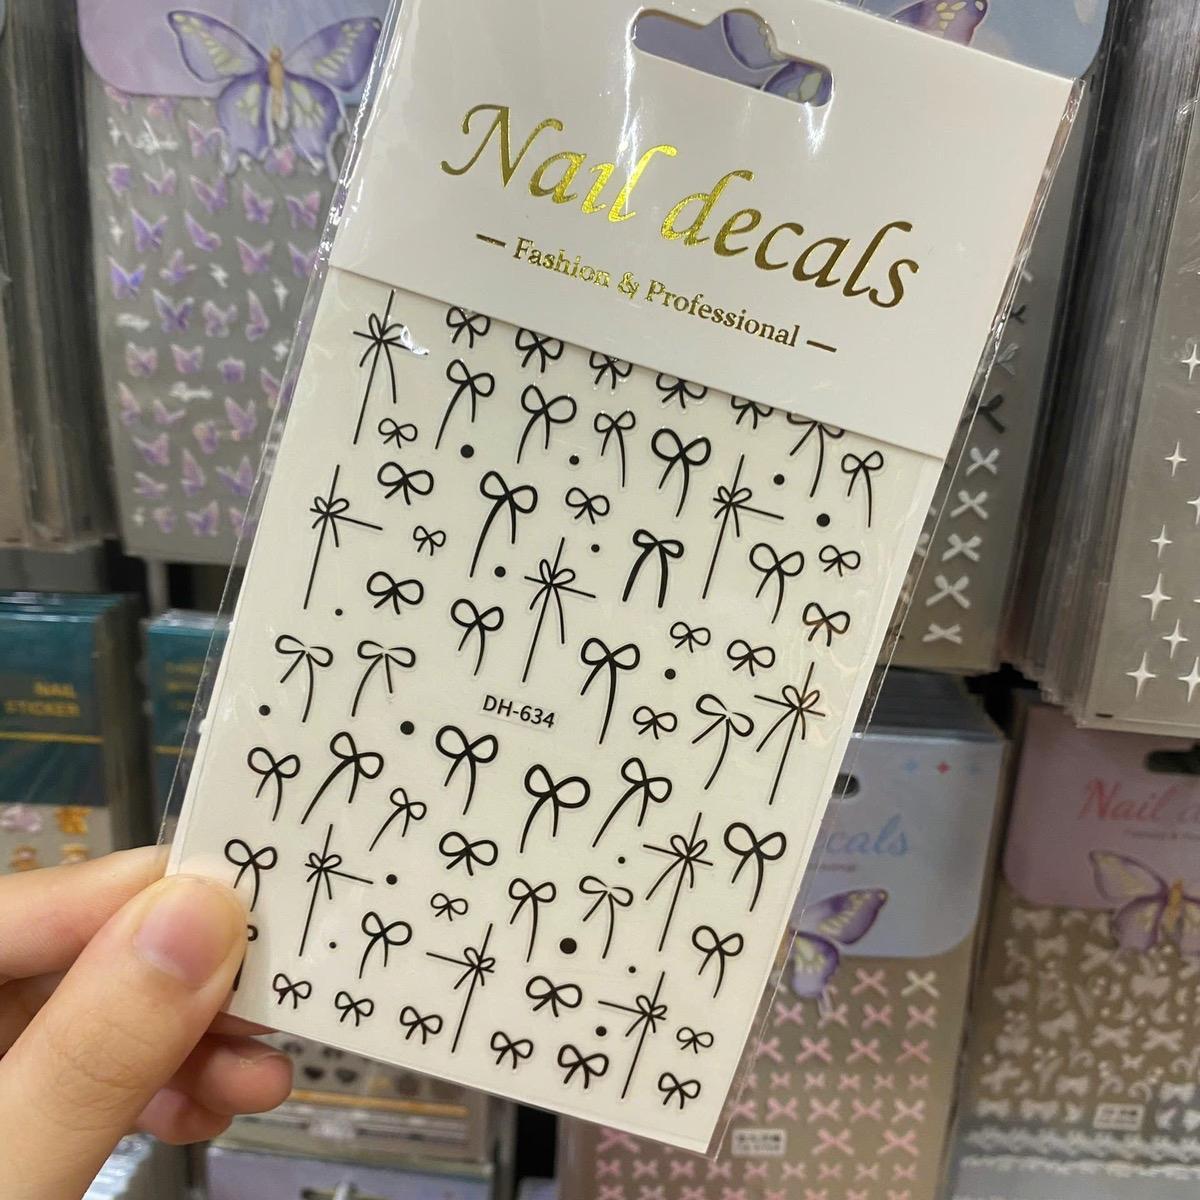 Nail decals
— Fashion & Professional —
DH-634
NAIL
STICKER
cals
Nail